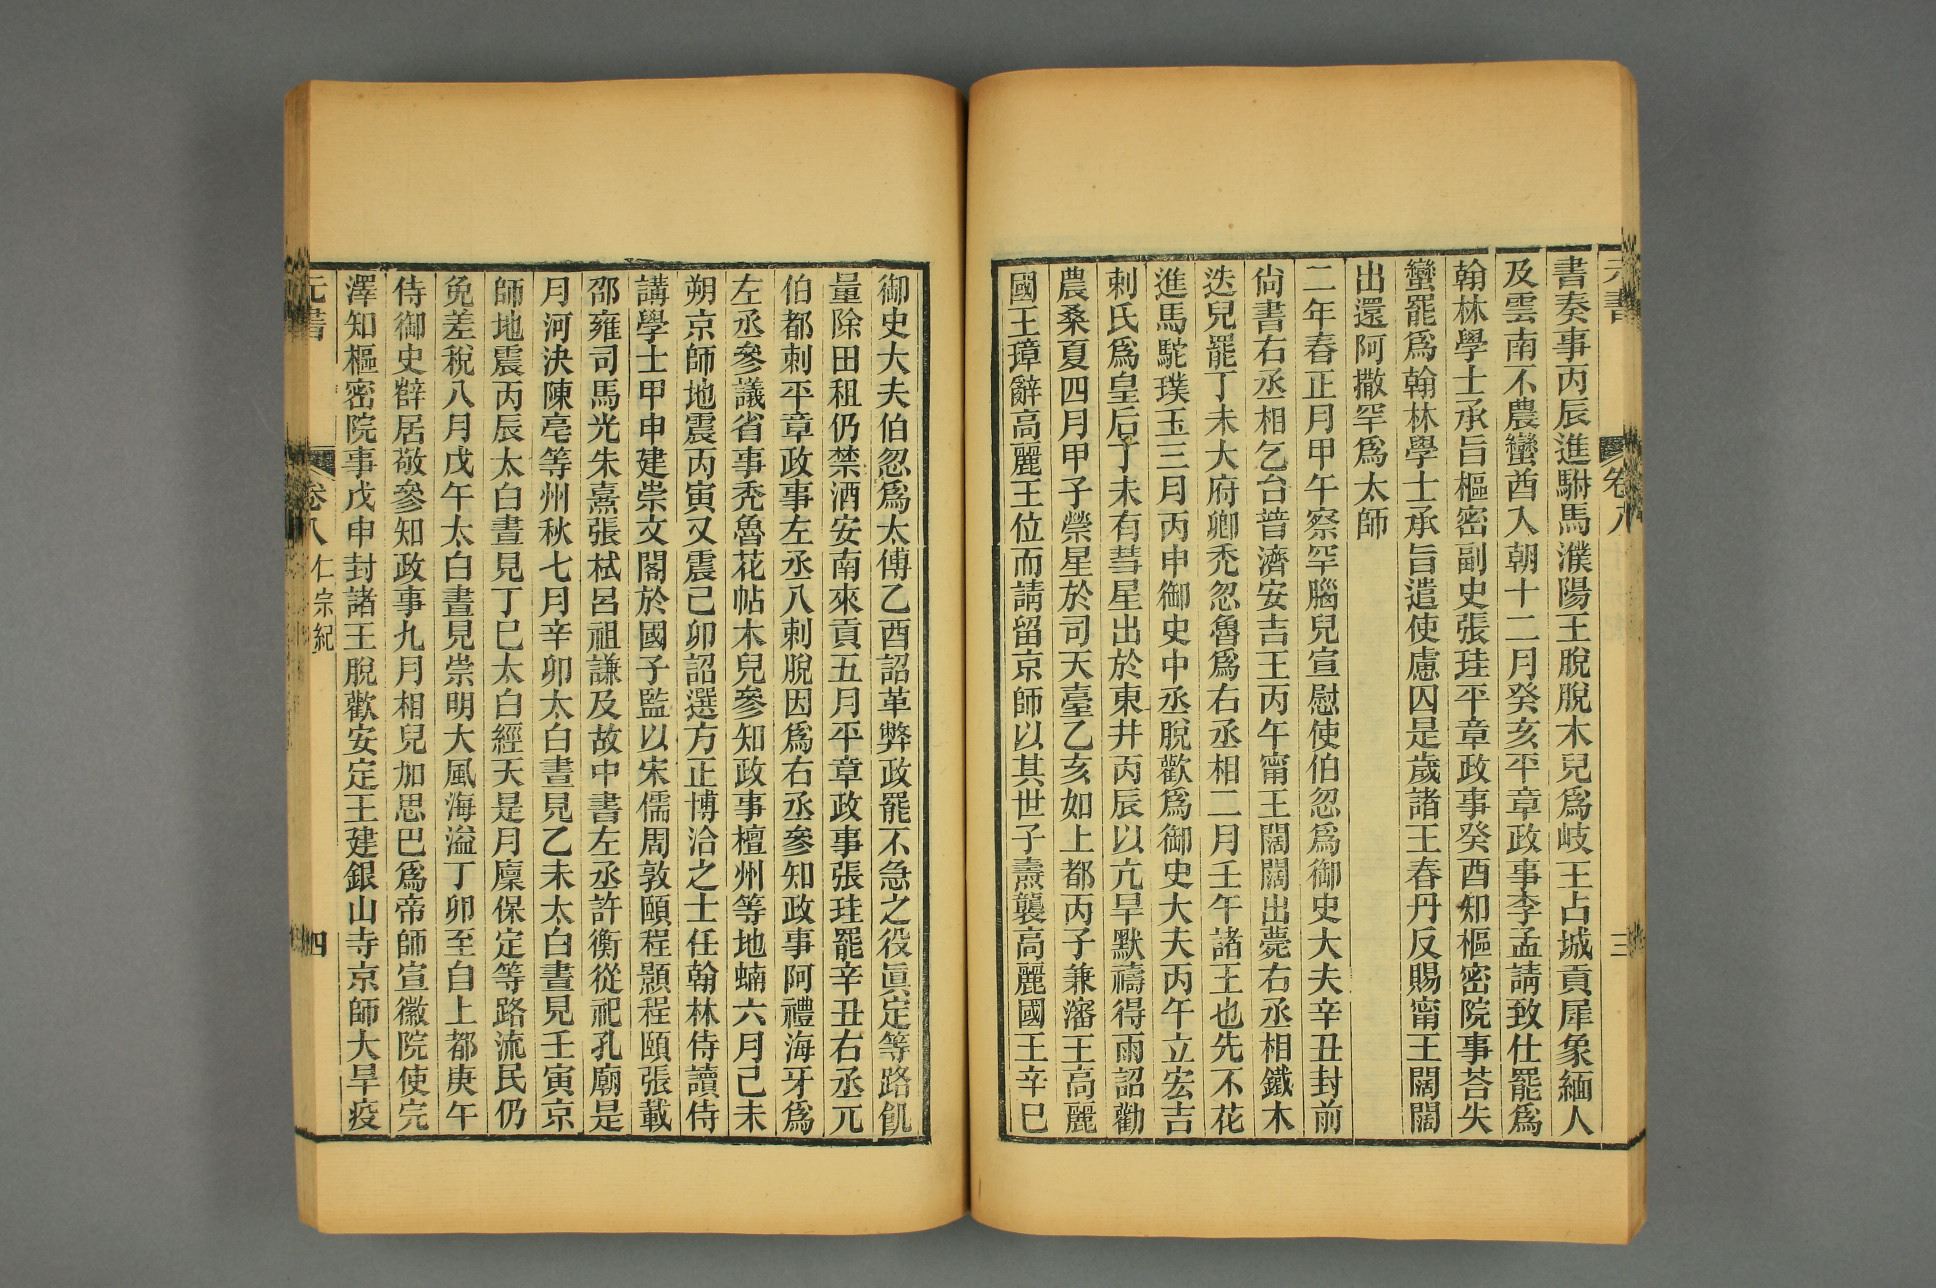 元書
卷八
三
書奏事丙辰進駙馬濮陽王脫脫木兒爲岐王占城貢犀象緬人
及雲南不農蠻酋入朝十二月癸亥平章政事李孟請致仕罷爲
翰林學士承旨樞密副史張珪平章政事癸酉知樞密院事荅失
蠻罷爲翰林學士承旨遣使慮囚是歲諸王春丹反賜甯王闊闊
出還阿撒罕爲太師
二年春正月甲午察罕腦兒宣慰使伯忽爲御史大夫辛丑封前
尙書右丞相乞台普濟安吉王丙午甯王闊闊出薨右丞相鐵木
迭兒罷丁未大府卿禿忽魯爲右丞相二月壬午諸王也先不花
進馬駝璞玉三月丙申御史中丞脫歡爲御史大夫丙午立宏吉
剌氏爲皇后丁未有彗星出於東井丙辰以亢旱默禱得雨詔勸
農桑夏四月甲子禜星於司天臺乙亥如上都丙子兼瀋王高麗
國王璋辭高麗王位而請留京師以其世子燾襲高麗國王辛巳
御史大夫伯忽爲太傅乙酉詔革弊政罷不急之役眞定等路飢
量除田租仍禁酒安南來貢五月平章政事張珪罷辛丑右丞兀
伯都剌平章政事左丞八剌脫因爲右丞參知政事阿禮海牙爲
左丞參議省事禿魯花帖木兒參知政事檀州等地蝻六月己未
朔京師地震丙寅又震己卯詔選方正博洽之士任翰林侍讀侍
講學士甲申建崇文閣於國子監以宋儒周敦頤程顥程頤張載
邵雍司馬光朱熹張栻呂祖謙及故中書左丞許衡從祀孔廟是
月河決陳亳等州秋七月辛卯太白晝見乙未太白晝見壬寅京
師地震丙辰太白晝見丁巳太白經天是月廩保定等路流民仍
免差稅八月戊午太白晝見崇明大風海溢丁卯至自上都庚午
侍御史辥居敬參知政事九月相兒加思巴爲帝師宣徽院使完
澤知樞密院事戊申封諸王脫歡安定王建銀山寺京師大旱疫
元書
卷八
仁宗紀
四